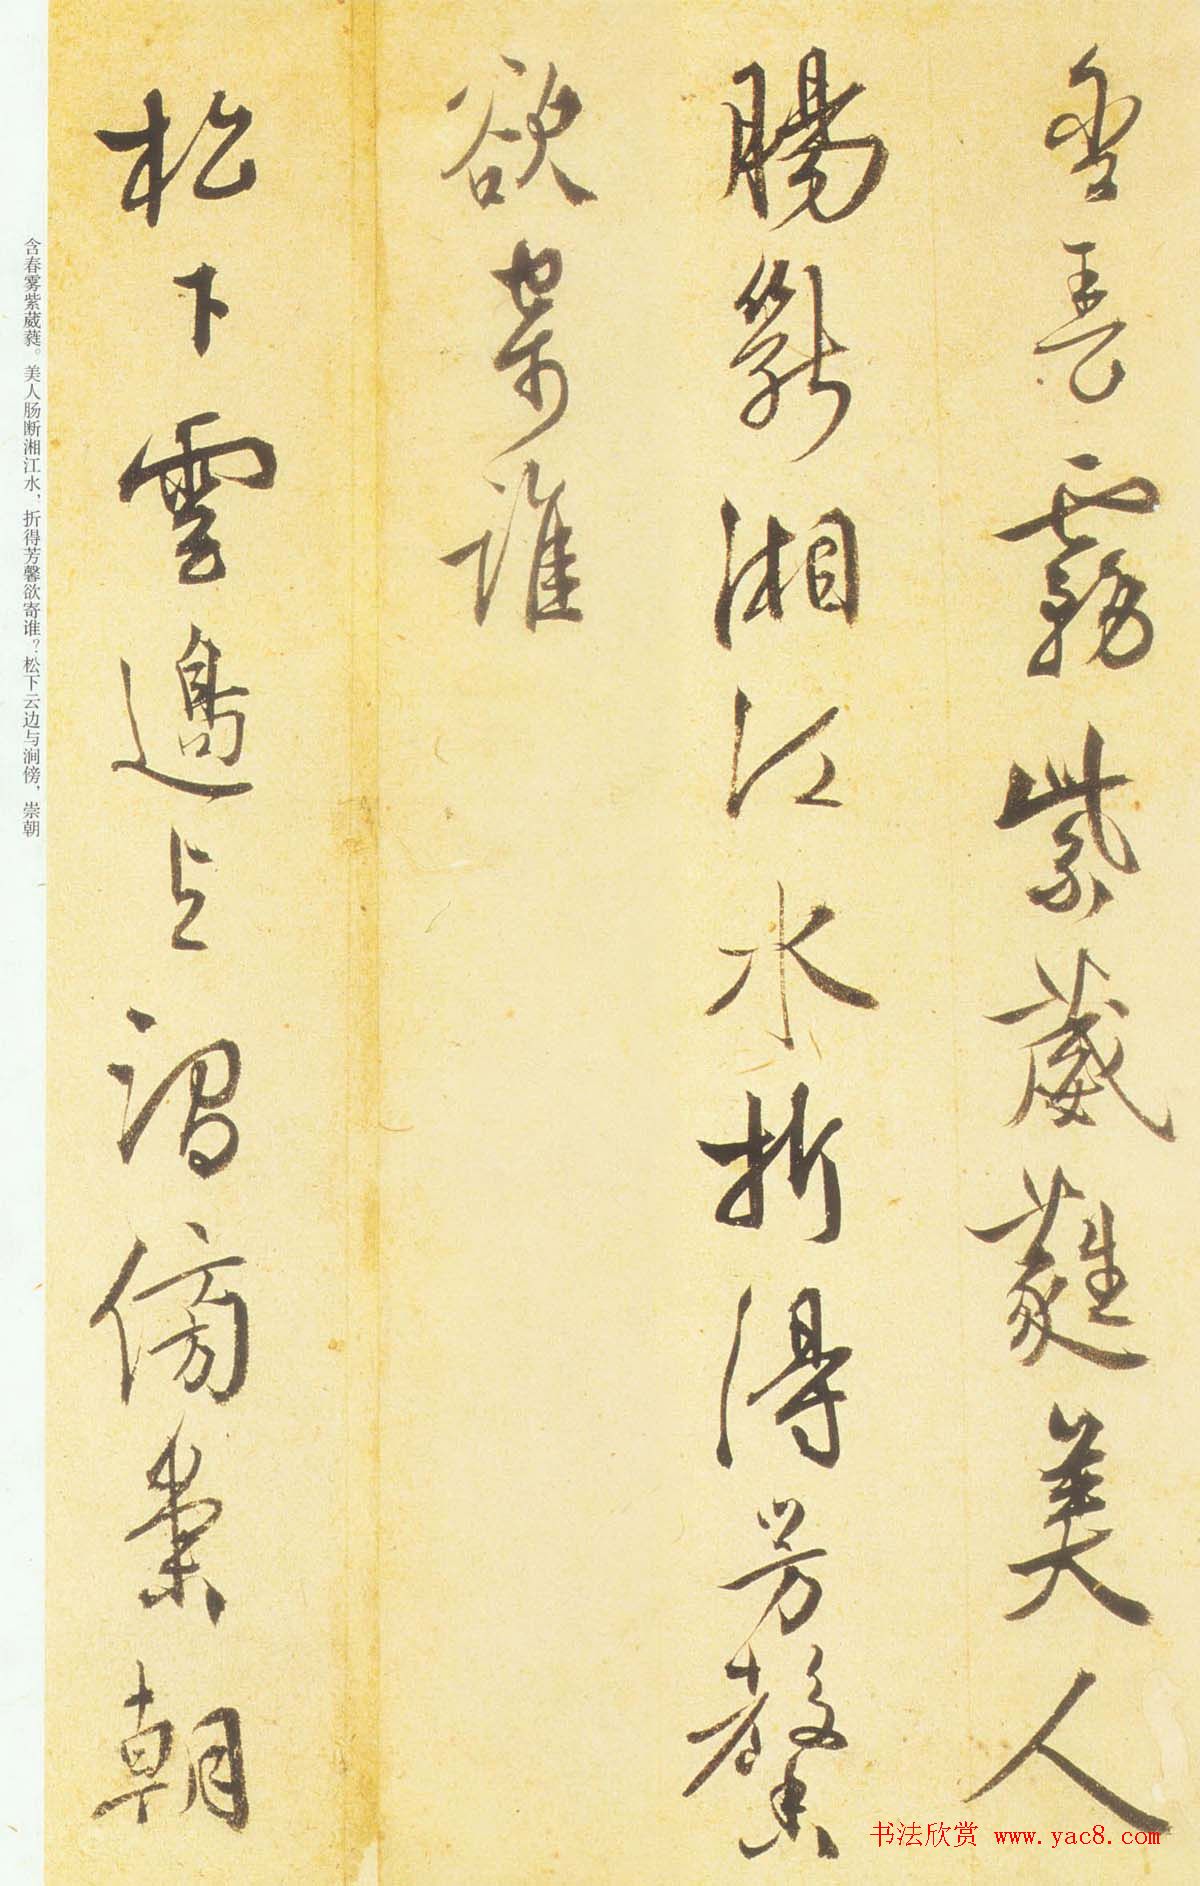 含春霧紫葳蕤美人
腸斷湘江水折得芳馨
欲寄誰
松下雲邊與澗傍崇朝
含春雾紫葳蕤。美人肠断湘江水,折得芳馨欲寄谁?松下云边与涧傍,崇朝
书法欣赏 www.yac8.com